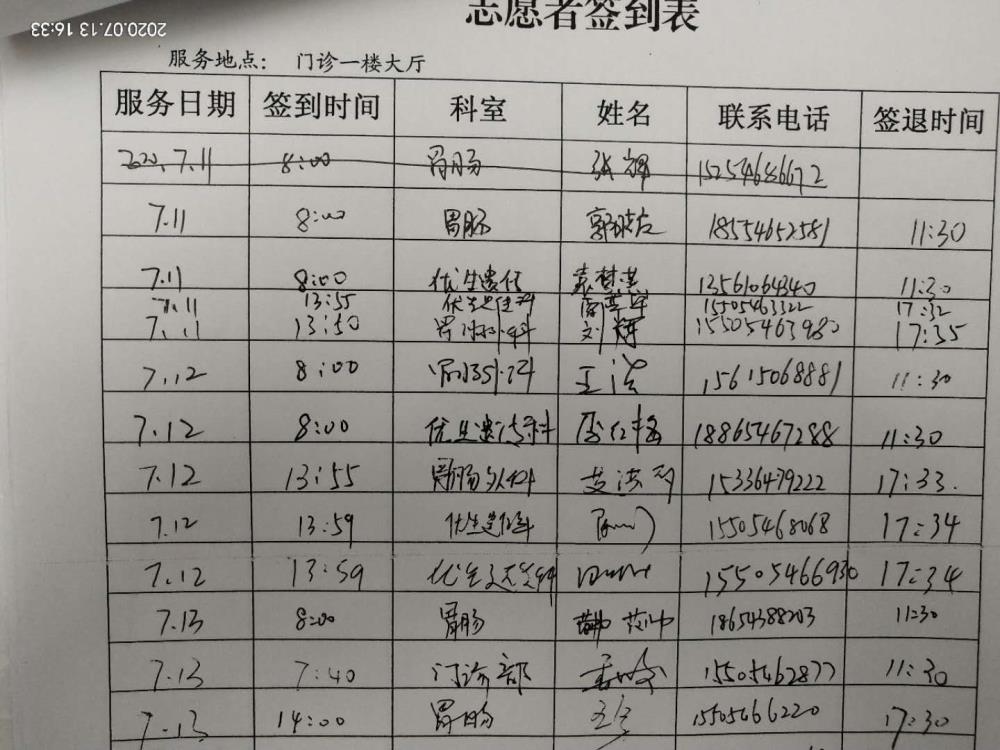 2020.07.13 16:33
志愿者签到表
服务地点： 门诊一楼大厅
服务日期 签到时间 科室 姓名 联系电话 签退时间
2020.7.11 8:00 胃肠 张辉 15254646672
7.11 8:00 胃肠 18554652581 11:30
7.11 8:00 优生遗传 袁梦洪 13561064340 11:30
7.11 13:55 优生遗传科 15505463322 17:32
7.11 13:50 胃肠外科 刘辉 15505463980 17:35
7.12 8:00 胃肠外科 王浩 15615068881 11:30
7.12 8:00 优生遗传科 18865467288 11:30
7.12 13:55 胃肠外科 15336479222 17:33.
7.12 13:59 优生遗传科 15505468068 17:34
7.12 13:59 优生遗传科 15505466930 17:34
7.13 8:00 胃肠 18654388203 11:30
7.13 7:40 门诊部 15505462877 11:30
7.13 14:00 胃肠 15505466220 17:30